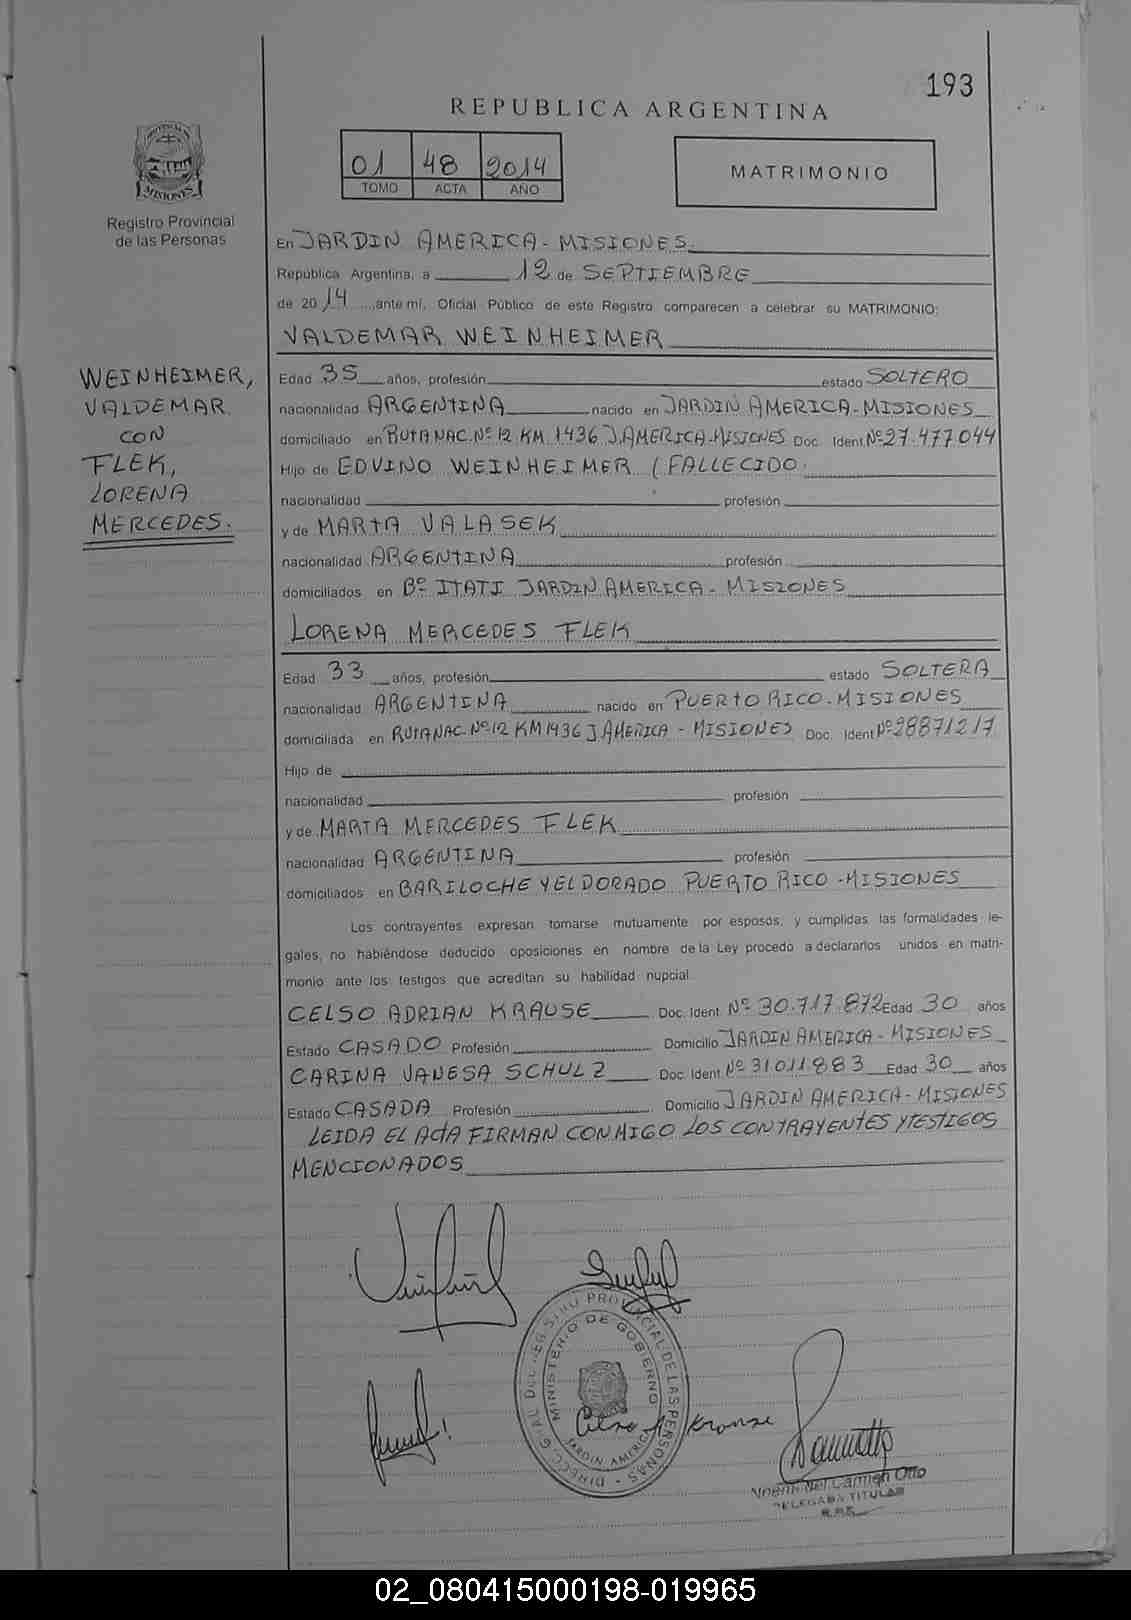 193
REPUBLICA ARGENTINA
01 48 2014
TOMO ACTA AÑO
MATRIMONIO
MISIONES
Registro Provincial
de las Personas
En JARDIN AMERICA - MISIONES.
República Argentina, a 12 de SEPTIEMBRE
de 20 14 ante mí, Oficial Público de este Registro comparecen a celebrar su MATRIMONIO:
VALDEMAR WEINHEIMER
WEINHEIMER,
VALDEMAR
CON
FLEK,
LORENA
MERCEDES.
Edad 35 años, profesión estado SOLTERO
nacionalidad ARGENTINA nacido en JARDIN AMERICA - MISIONES
domiciliado en RUTA NAC. Nº 12 KM. 1436 J. AMERICA-MISIONES Doc. Ident. Nº 27.477.044
Hijo de EDVINO WEINHEIMER (FALLECIDO.
nacionalidad profesión
y de MARTA VALASEK
nacionalidad ARGENTINA profesión
domiciliados en Bº ITATI JARDIN AMERICA - MISIONES
LORENA MERCEDES FLEK
Edad 33 años, profesión estado SOLTERA
nacionalidad ARGENTINA nacido en PUERTO RICO - MISIONES
domiciliada en RUTA NAC. Nº 12 KM 1436 J AMERICA - MISIONES Doc. Ident. Nº 28871217
Hijo de
nacionalidad profesión
y de MARTA MERCEDES FLEK
nacionalidad ARGENTINA profesión
domiciliados en BARILOCHE Y ELDORADO PUERTO RICO - MISIONES
Los contrayentes expresan tomarse mutuamente por esposos, y cumplidas las formalidades le-
gales, no habiéndose deducido oposiciones en nombre de la Ley procedo a declararlos unidos en matri-
monio ante los testigos que acreditan su habilidad nupcial.
CELSO ADRIAN KRAUSE Doc. Ident. Nº 30.717.872 Edad 30 años
Estado CASADO Profesión Domicilio JARDIN AMERICA - MISIONES
CARINA VANESA SCHULZ Doc. Ident. Nº 31011883 Edad 30 años
Estado CASADA Profesión Domicilio JARDIN AMERICA - MISIONES
LEIDA EL ACTA FIRMAN CONMIGO LOS CONTRAYENTES Y TESTIGOS
MENCIONADOS
REGISTRO PROVINCIAL DE LAS PERSONAS
MINISTERIO DE GOBIERNO
JARDIN AMERICA
Celso A Krause
Noemi del Carmen Otto
DELEGADA TITULAR
02_080415000198-019965